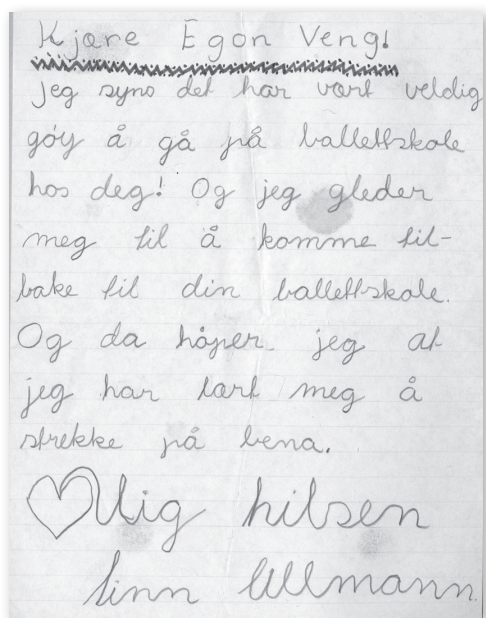 Kjære Egon Veng!
jeg syns det har vært veldig
góy å gå på ballettskole
hos deg! Og jeg gleder
meg til å komme til-
bake til din ballett-skole.
Og da håper jeg at
jeg har lært meg å
strekke på bena.
♡lig hilsen
Linn Ullmann.